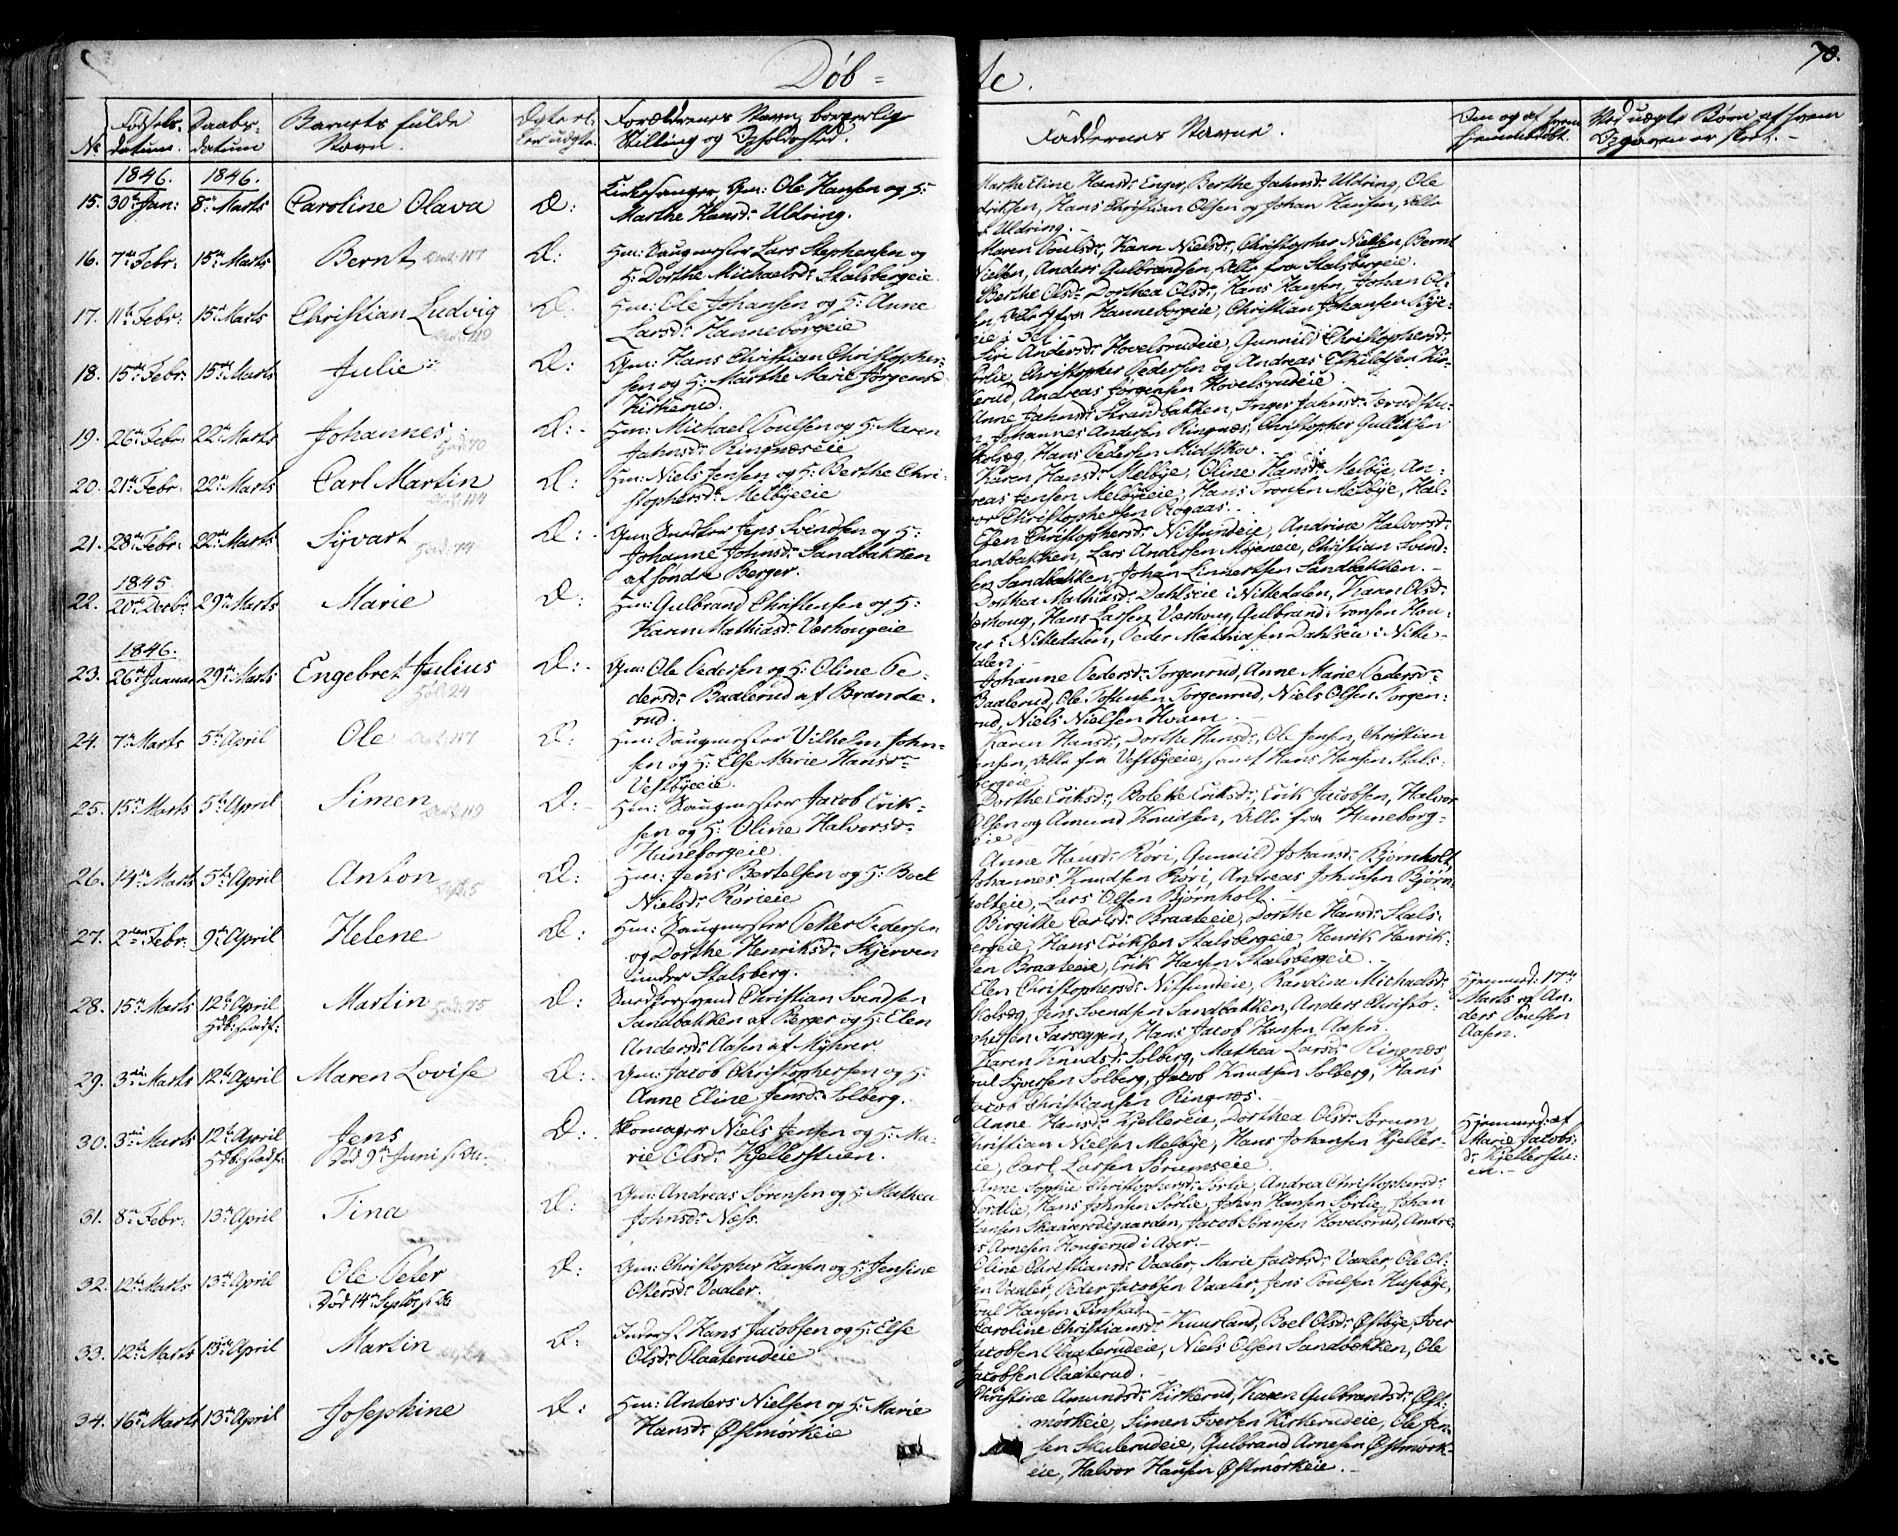 Døb=
te.
70.
No
Fødsels-
datum.
Daabs-
datum
Barnets fulde
Navn.
Forældrenes Navn, borgerlig
Stilling og Opholdssted.
Faddernes Navne.
1846. 1846.
15. 30te Jan: 8de Marts Caroline Olava D: Kirkesanger Gm: Ole Hansen og H:
Marthe Hansd: Uldring.
Marthe Eline Hansd: Enger, Berthe Jahnsd: Uldring, Ole
driksen, Hans Christian Olsen og Johan Hansen, Alle
f. Uldring.
16. 7de Febr: 15de Marts Bernt D: Hm: Saugmester Lars Stephensen og
H: Dorthe Michaelsd: Stalsbergeie.
Maren Poulsd:, Karn Nielsd:, Christopher Nielsen, Bernt
Nielsen, Anders Gulbrandsen, Alle fra Stalsbergeie.
17. 11te Febr: 15de Marts Christian Ludvig D: Hm: Ole Johansen og H: Anne
Larsd: Hanneborgeie
Berthe Olsd:, Dorthea Olsd:, Hans Hansen, Johan Ol-
sen, Alle fra Hanneborgeie, Christian Johansen Rye-
eie i Sel.
18. 15de Febr: 15de Marts Julie D: Gm: Hans Christian Christopher-
sen og H: Marthe Marie Jørgensd:
Kirkerud.
Siri Andersd: Hovelsrudeie, Gunnild Christophersd:
Sørlie, Christopher Pedersen og Andreas Eskildsen Kir-
kerud, Andreas Jørgensen Hovelsrudeie.
19. 26de Febr: 22de Marts Johannes D: Hm: Michael Poulsen og H: Maren
Jahnsd: Ringnæseie
Anne Jahnsd: Strandbakken, Inger Jahnsd:
Johannes Andersen Ringnæs, Christopher Gulliksen
Hans Pedersen Midtskov.
20. 21de Febr: 22de Marts Carl Martin D: Hm: Niels Jensen og H: Berthe Chri-
stophersd: Melbyeeie
Karen Hansd: Melbye, Oline Hansd: Melbye, An-
dreas Jensen Melbyeeie, Hans Tronsen Melbye, Hal-
vor Christophersen Rogaas.
21. 28de Febr: 22de Marts Syvart D: Gm: Snedker Jens Svendsen og H:
Johanne Johnsd: Sandbakken
af søndre Berger.
Elen Christophersd: Nitsundeie, Andrine Halvorsd:
Sandbakken, Lars Andersen Christian Svend-
sen Sandbakken, Johan Lennertsen Sandbakken.
1845
22. 20de Decbr: 29de Marts Marie D: Hm: Gulbrand Christensen og H:
Karen Mathiasd: Værhougeie
Dorthea Mathiasd: Dahlseie i Nittedalen, Karen Olsd:
Værhoug, Hans Larsen Værhoug, Gulbrand Tronsen Hou-
ger i Nittedalen, Peder Mathiasen Dahlseie i Nitte-
dalen.
1846.
23. 26de Januar 29de Marts Engebret Julius D: Gm: Ole Pedersen og H: Oline Pe-
dersd: Baalerud af Brande-
rud.
Johanne Pedersd: Torgenrud, Anne Marie Pedersd:
Baalerud, Ole Torgenrud, Niels Olsen Torgen-
rud, Niels Nielsen Hvam.
24. 7de Marts 5te April Ole D: Hm: Saugmester Vilhelm John-
sen og H: Else Marie Hansd:
Vestbyeeie.
Karen Hansd:, Dorthe Hansd:, Ole Jensen, Christian
Jensen, Alle fra Vestbyeeie, samt Hans Hansen Stals-
bergeie.
25. 15de Marts 5te April Simen D: Hm: Saugmester Jacob Erik-
sen og H: Oline Halvorsd:
Huneborgeie.
Dorthe Eriksd:, Bolette Eriksd:, Erik Jacobsen, Halvor
Olsen og Amund Knudsen, Alle fra Huneborg-
eie
26. 14de Marts 5te April Anton D: Hm: Jens Bertelsen og H: Boel
Nielsd: Rørieie
Anne Hansd: Røri, Gunnild Johansd: Bjørnholt,
Johannes Knudsen Røri, Andreas Johansen Bjørn-
holteie, Lars Olsen Bjørnholt.
27. 2den Febr: 9de April Helene D: Hm: Saugmester Petter Pedersen
og Dorthe Henriksd: Skjerven
under Stalsberg.
Birgitte Carlsd: Braateeie, Dorthe Hansd: Stals-
bergeie, Hans Eriksen Stalsbergeie, Henrik Henrik-
sen Braateeie, Erik Hansen Stalsbergeie.
28. 15de Marts 12te April Martin D: Christian Svendsen
Hdb: stadf:
Sandbakken af Berger og H: Elen
Andersd: Aasen af Myhrer.
Elen Christophersd: Nitsundeie, Randine Michaelsd:
Jens Svendsen Sandbakken, Anders Christo-
phersen Farseggen, Hans Jacob Hansen Aasen.
Hjemmed: 17de
Marts af An-
ders Poulsen
Aasen.
29. 3die Marts 12te April Maren Lovise D: Gm: Jacob Christophersen og H:
Anne Eline Jensd: Solberg.
Karen Knudsd: Solberg, Mathea Larsd: Ringnæs,
Poul Syversen Solberg, Jacob Knudsen Solberg, Hans
Jacob Christiansen Ringnæs.
30. 3die Marts 12te April Jens D: Skomager Niels Jensen og H: Ma-
Hdb: stadf:
Død 9de Juni s. A.
rie Olsd: Kjellerstuen.
Anne Hansd: Kjellereie, Dorthea Olsd: Sørum,
Christian Nielsen Melbye, Hans Johansen Kjeller-
eie, Carl Larsen Sørumseie.
Hjemmed: af
Marie Jacobs-
d: Kjellerstu-
en.
31. 8de Febr: 13de April Tina D: Gm: Andreas Sørensen og H: Mathea
Johnsd: Næss.
Anne Sophie Christophersd: Sørlie, Andrea Christophersd:
Nordlie, Hans Johnsen Sørlie, Johan Hansen Sørlie, Johan
Hansen Skaanrødegaarden, Jacob Sørensen Hovelsrud, Andre-
as Arnesen Hougerud i Ager.
32. 12te Marts 13de April Ole Peter D: Gm: Christopher Hansen og H: Jensine
Død 14de Septbr s. A.
Ottersd: Vaaler.
Oline Christiansd: Vaaler, Marie Jacobsd: Vaaler, Ole Ol-
sen Vaaler, Peder Jacobsen Vaaler, Jens Poulsen Husebye,
Poul Hansen Finstad.
33. 12te Marts 13de April Martin D: Inders. Hans Jacobsen og H: Else
Olsd: Olaaterudeie
Caroline Christiansd: Kuurland, Boel Olsd: Østbye, Iver
Jacobsen Olaaterudeie, Niels Olsen Sandbækken, Ole
Jacobsen Olaaterud.
34. 16de Marts 13de April Josephine D: Hm: Anders Nielsen og H: Marie
Hansd: Østmørkeie
Christine Amundsd: Kirkerud, Karen Gulbrandsd: Øst-
mørkeie, Simen Iversen Kirkerudeie, Ole Jen-
sen Skulerudeie, Gulbrand Arnesen Østmørk-
eie, Halvor Hansen Østmørkeie.